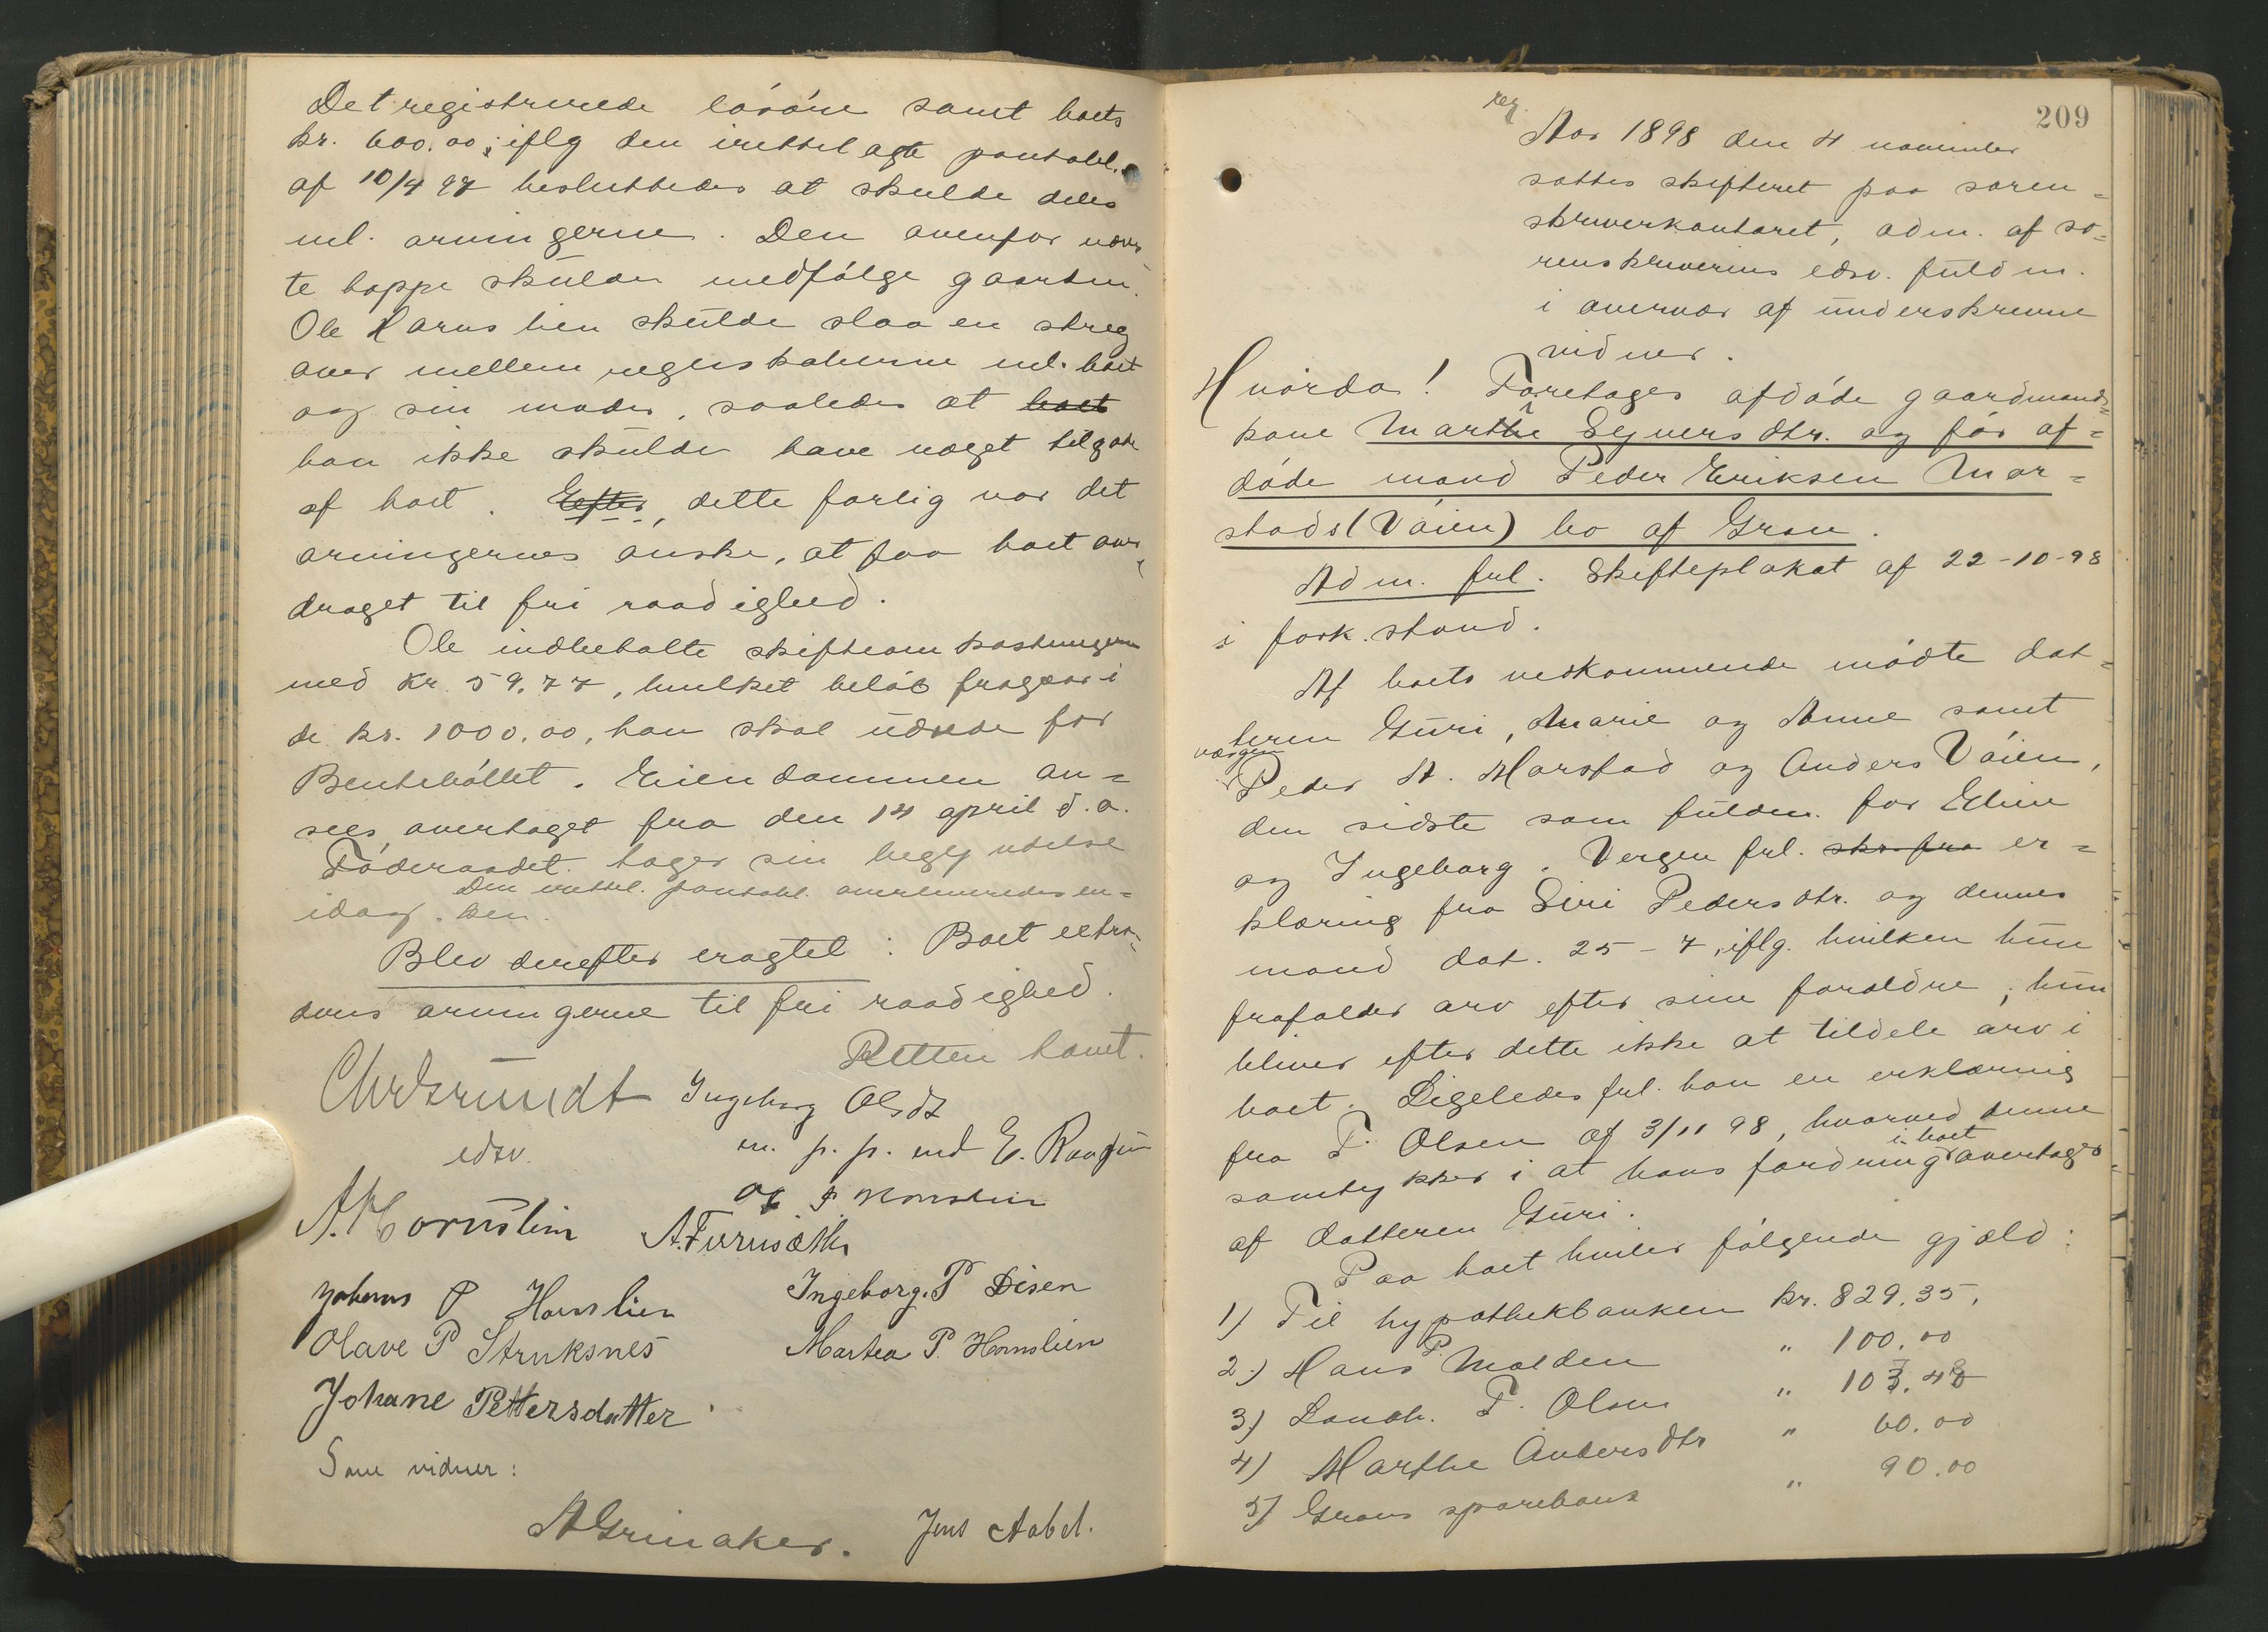 Det registrerede løsøre samt boets
kr. 600.00, iflg den irettelagte pantobl.
af 10/4 97 besluttedes at skulde deles
ml. arvingerne. Den ovenfor nævn
te hoppe skulde medfølge gaarden.
Ole Hornslien skulde slaa en streg
over mellem regnskaberne ml. boet
og sin moder, saaledes at boet
han ikke skulde have noget tilgode
af boet. Efter dette forlig var det
arvingernes ønske, at faa boet over
draget til fri raadighed.
Ole indbetalte skifteomkostningerne
med kr. 59.77, hvilket beløb fragaar i
de kr. 1000.00, han skal udrede for
Bentebøllet. Eiendommen an=
sees overtaget fra den 14 april d.a.
Føderaadet tager sin begyndelse
Den irettel. pantobl. overleveredes en=
idag. ken.
Blev derefter eragtet: Boet extra-
deres arvingerne til fri raadighed.
Retten hævet.
Chr Grundt Ingeborg Olsdt
edsv. m. p. p. ved E. Raagen
A. Hornslien Ole P Hornslien
A. Furuseth
Johans P Hornslien Ingeborg. P Disen
Olave P Struksnes Martea P. Hornslien
Johane Pettersdatter
Som vidner:
A Grinaker. Jens Aabel.
209
reg.
Aar 1898 den 4 november
sattes skifteret paa soren=
skriverkontoret, adm. af so=
renskriverens edsv. fuldm.
i overvær af underskrevne
vidner.
Hvorda! Foretages afdøde gaardmands
kone Marthe Syversdtr. og før af=
døde mand Peder Eriksen Mor=
stads (Vøien) bo af Gran.
Adm. frl. Skifteplakat af 22-10-98
i fork. stand.
Af boets vedkommende mødte døt=
trene Guri, Marie og Anne samt
værgen
Peder A. Morstad og Anders Vøien,
den sidste som fuldm. for Eline
og Ingeborg. Vergen frl. skr. fra er=
klæring fra Siri Pedersdtr. og dennes
mand dat. 25-7, iflg. hvilken hun
frafalder arv efter sine forældre; hun
bliver efter dette ikke at tildele arv i
boet. Ligeledes frl. han en erklæring
fra T. Olsen af 3/11 98, hvorved denne
i boet
samtykker i at hans fordring overtages
af datteren Guri.
Paa boet hviler følgende gjæld:
1) Til hypothekbanken kr. 829.35.
2) Hans P. Molden " 100.00
3) Landh. T. Olsen " 103.48
4) Marthe Andersdtr " 60.00
5) Grans sparebank " 90.00